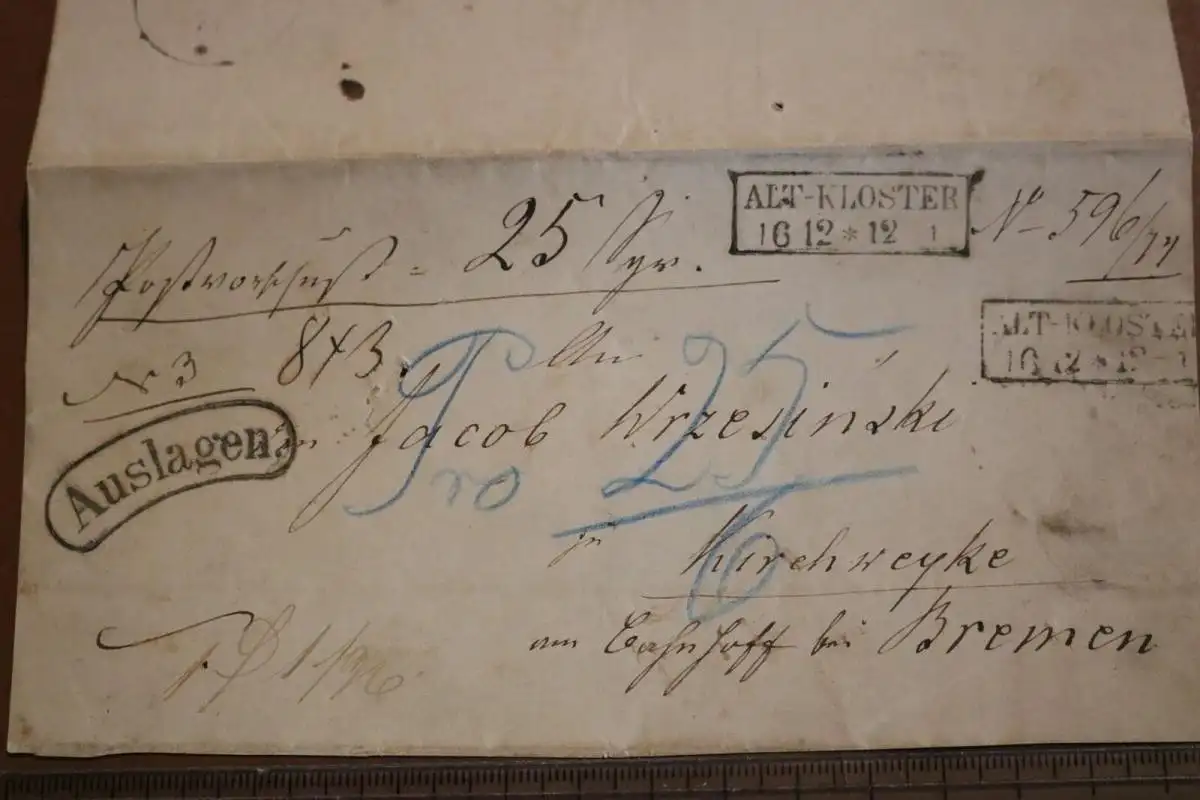 ALT-KLOSTER
16 12 * 12 1
Postvorschuß = 25 Sgr.
No 596/74
ALT-KLOSTER
16 12 * 12 1
No 3
843.
An
Auslagen
Jacob Wrzesiński
Pro 25
6
in Kirchweyke
am Bahnhoff bei Bremen